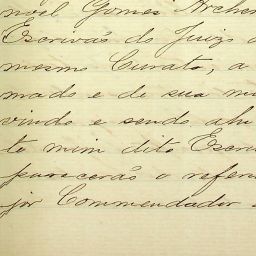 noel Gomes Archer
Escrivão do Juizo
mesmo Curato, a
mado e de sua
vindo e sendo ahi
to mim dito Escri
parecerão o refer
jor Commendador